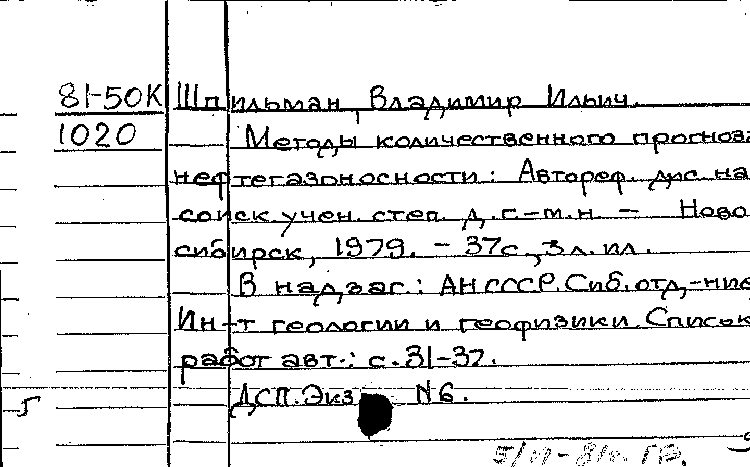 81-50К Шпильман, Владимир Ильич.
1020 Методы количественного прогноза
нефтегазоносности: Автореф. дис на
соиск. учен. степ. д. г.-м. н. — Ново
сибирск, 1979. - 37с., 3 л. ил.
В надзаг.: АН СССР. Сиб. отд,-ние
Ин-т геологии и геофизики. Список
работ авт.: с. 31-37.
ДСП. Экз N6.
5